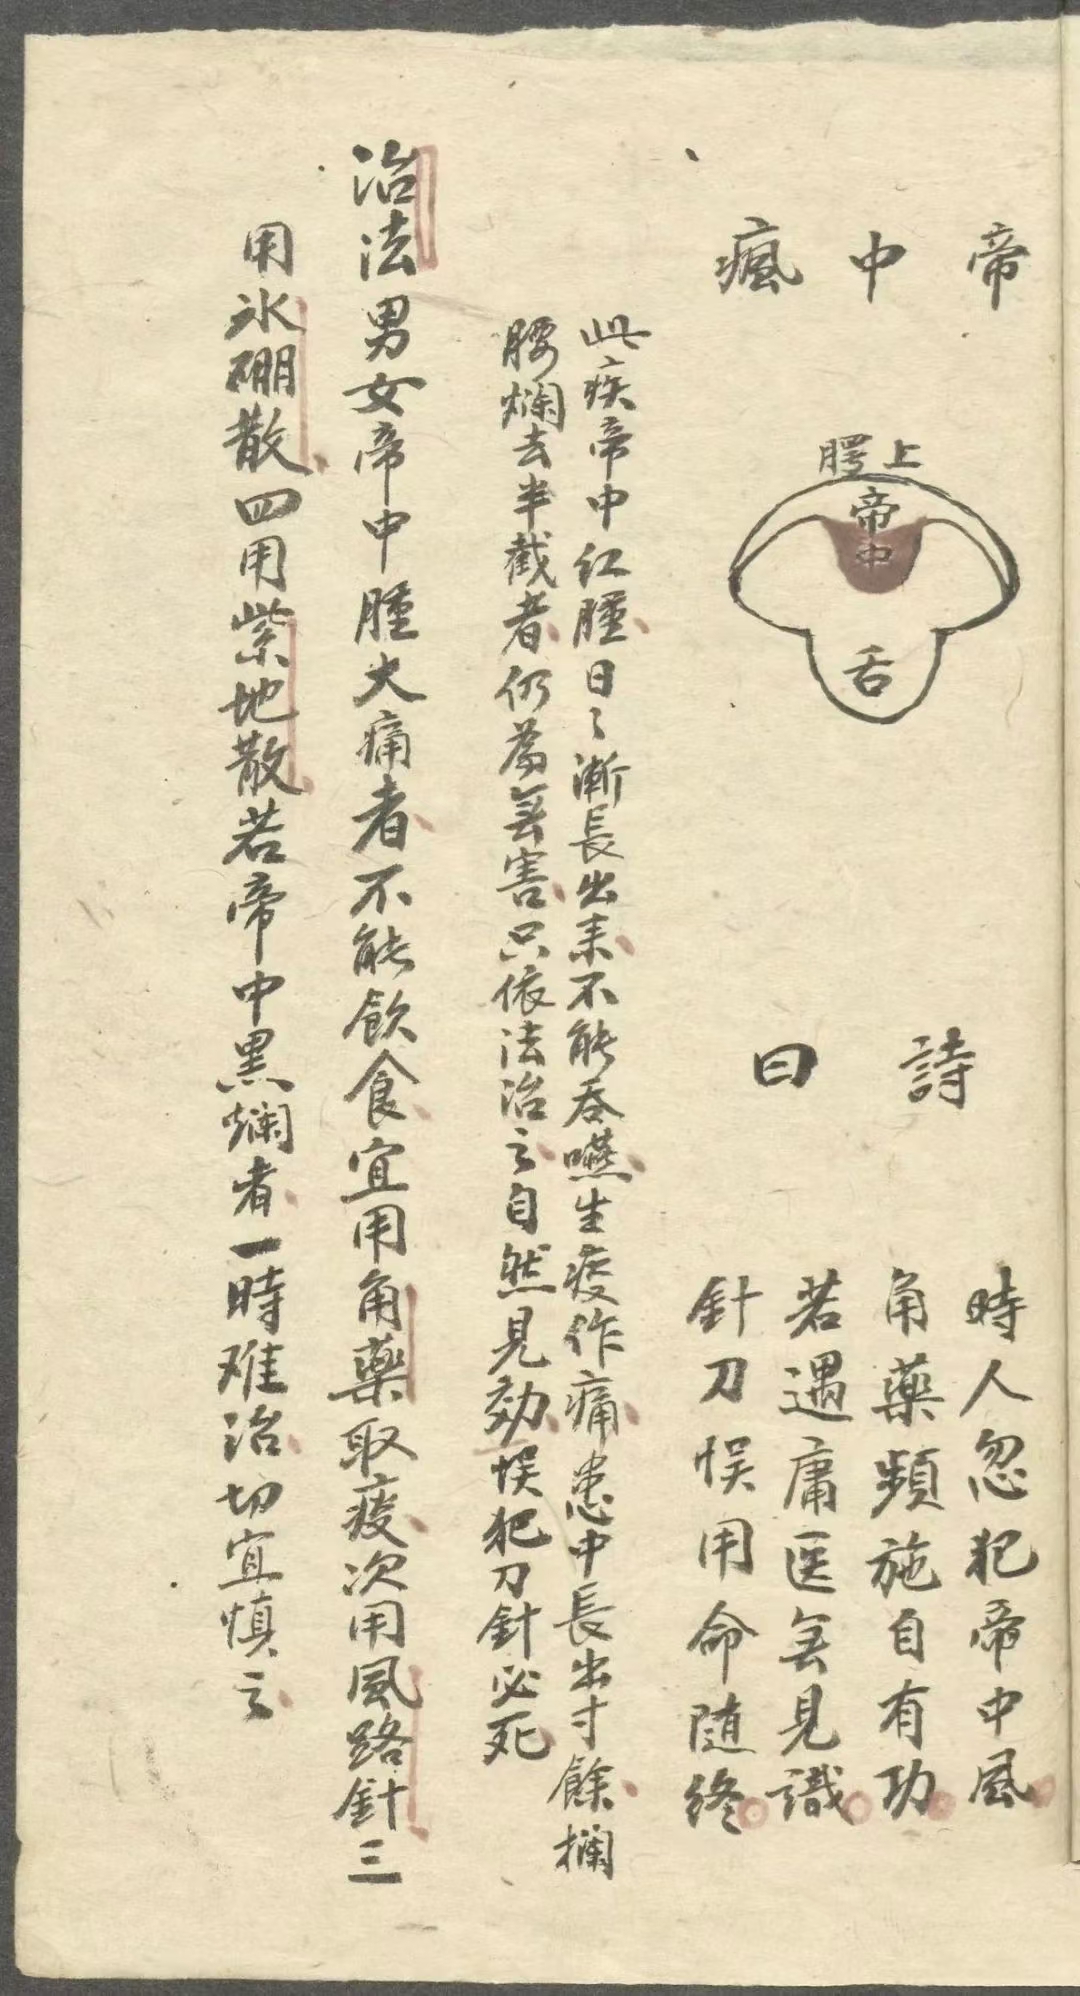 帝中瘋
上腭
帝中
舌
詩曰
時人忽犯帝中風
角藥頻施自有功
若遇庸医無見識
針刀悮用命随終
此疾帝中红腫日〻漸長出来不能吞嚥生痰作痛患中長出寸餘攔
腰爛去半截者仍為無害只依法治之自然見効悮犯刀針必死
治法男女帝中腫大痛者不能飲食宜用角藥取痰次用風路針三
用氷硼散四用紫地散若帝中黑爛者一時难治切宜慎之